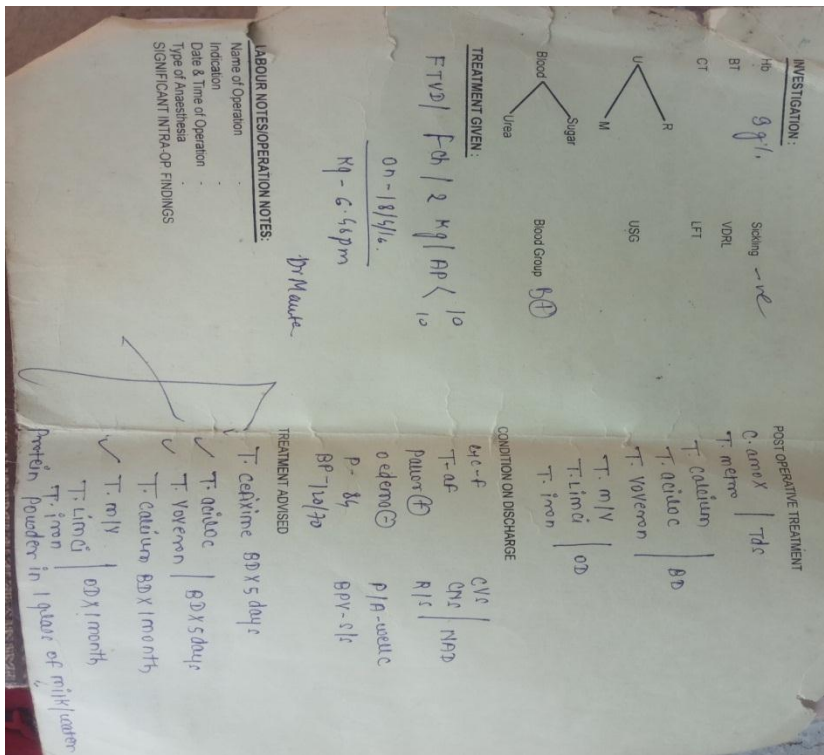 INVESTIGATION :
Hb 9 g% Sickling -ve
BT VDRL
CT LFT
U R M USG
Blood Sugar Urea Blood Group B(+)
TREATMENT GIVEN :
FTVD / fch / 2 Kg / AP < 10 10
on - 18/4/16.
6.46pm
LABOUR NOTES/OPERATION NOTES:
Name of Operation -
Indication -
Date & Time of Operation -
Type of Anaesthesia -
SIGNIFICANT INTRA-OP FINDINGS
POST OPERATIVE TREATMENT
C. amox / Tds
T. metro
T. calcium
T. aciloc / BD
T. Voveron
T. m/v
T. Limci / OD
T. iron
CONDITION ON DISCHARGE
T-af CVS
CNS / NAD
pallor (+) R/S
oedema (-) P/A-
P- 84
BP-120/70
TREATMENT ADVISED
T. Cefixime BD X 5 days
T. aciloc
T. Voveron / BD X 5 days
T. Calcium BD X 1 month
T. m/v
T. Limci / OD X 1 month
T. iron
Protein powder in 1 glass of milk/water